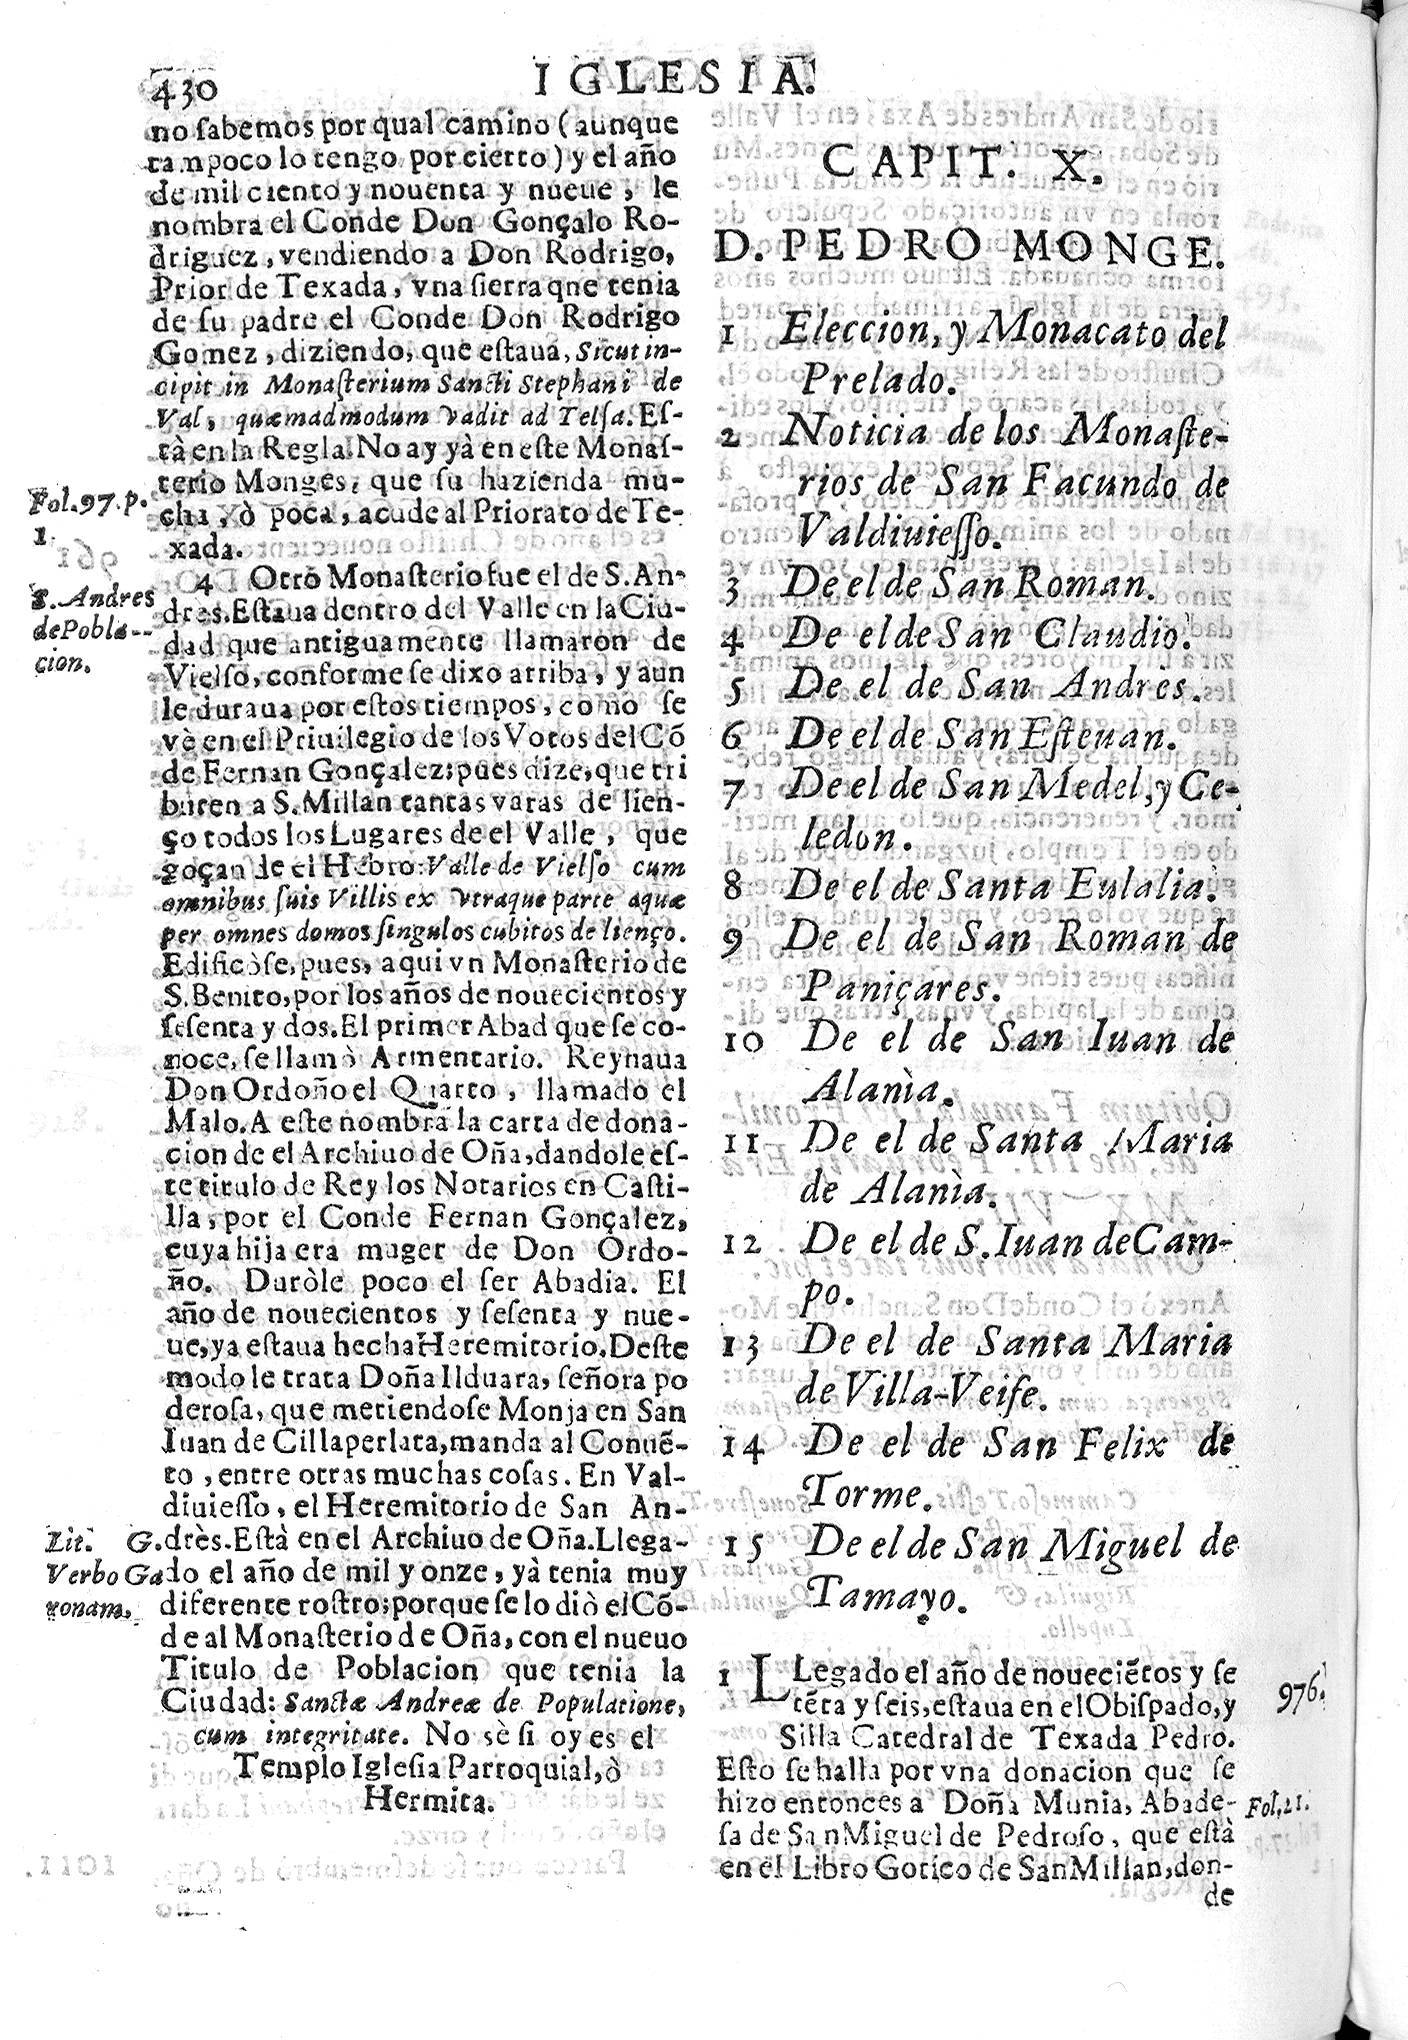 430
IGLESIA.
no sabemos por qual camino (aunque
tampoco lo tengo por cierto) y el año
de mil ciento y nouenta y nueue, le
nombra el Conde Don Gonçalo Ro-
driguez, vendiendo a Don Rodrigo,
Prior de Texada, vna sierra qne tenia
de su padre el Conde Don Rodrigo
Gomez, diziendo, que estaua, Sicut in-
cipit in Monasterium Sancti Stephani de
Val, quæmadmodum vadit ad Telsa. Es-
tà en la Regla. No ay yà en este Monas-
terio Monges, que su hazienda mu-
cha, ò poca, acude al Priorato de Te-
xada.
Fol. 97. p.
1.
4 Otro Monasterio fue el de S. An-
dres. Estaua dentro del Valle en la Ciu-
dad que antiguamente llamaron de
Vielso, conforme se dixo arriba, y aun
le duraua por estos tiempos, como se
vè en el Priuilegio de los Votos del Cõ
de Fernan Gonçalez: pues dize, que tri
buten a S. Millan tantas varas de lien-
ço todos los Lugares de el Valle, que
goçan de el Hebro: Valle de Vielso cum
omnibus suis Villis ex vtraque parte aquæ
per omnes domos singulos cubitos de lienço.
Edificòse, pues, aqui vn Monasterio de
S. Benito, por los años de nouecientos y
sesenta y dos. El primer Abad que se co-
noce, se llamò Armentario. Reynaua
Don Ordoño el Quarto, llamado el
Malo. A este nombra la carta de dona-
cion de el Archiuo de Oña, dandole es-
te titulo de Rey los Notarios en Casti-
lla, por el Conde Fernan Gonçalez,
cuya hija era muger de Don Ordo-
ño. Duròle poco el ser Abadia. El
año de nouecientos y sesenta y nue-
ue, ya estaua hecha Heremitorio. Deste
modo le trata Doña Ilduara, señora po
derosa, que metiendose Monja en San
Iuan de Cillaperlata, manda al Conuẽ-
to, entre otras muchas cosas. En Val-
diuiesso, el Heremitorio de San An-
drès. Està en el Archiuo de Oña. Llega-
do el año de mil y onze, yà tenia muy
diferente rostro; porque se lo diò el Cõ-
de al Monasterio de Oña, con el nueuo
Titulo de Poblacion que tenia la
Ciudad: Sanctæ Andreæ de Populatione,
cum integritate. No sè si oy es el
Templo Iglesia Parroquial, ò
Hermita.
S. Andres
de Pobla--
cion.
Lit. G.
Verbo Ga
ronam.
CAPIT. X.
D. PEDRO MONGE.
1 Eleccion, y Monacato del
Prelado.
2 Noticia de los Monaste-
rios de San Facundo de
Valdiuiesso.
3 De el de San Roman.
4 De el de San Claudio.
5 De el de San Andres.
6 De el de San Esteuan.
7 De el de San Medel, y Ce-
ledon.
8 De el de Santa Eulalia.
9 De el de San Roman de
Paniçares.
10 De el de San Iuan de
Alanìa.
11 De el de Santa Maria
de Alanìa.
12 De el de S. Iuan de Cam-
po.
13 De el de Santa Maria
de Villa-Veise.
14 De el de San Felix de
Torme.
15 De el de San Miguel de
Tamayo.
1 LLegado el año de noueciẽtos y se
tẽta y seis, estaua en el Obispado, y
Silla Catedral de Texada Pedro.
Esto se halla por vna donacion que se
hizo entonces a Doña Munia, Abade-
sa de San Miguel de Pedroso, que està
en el Libro Gotico de San Millan, don-
de
976.
Fol. 21.